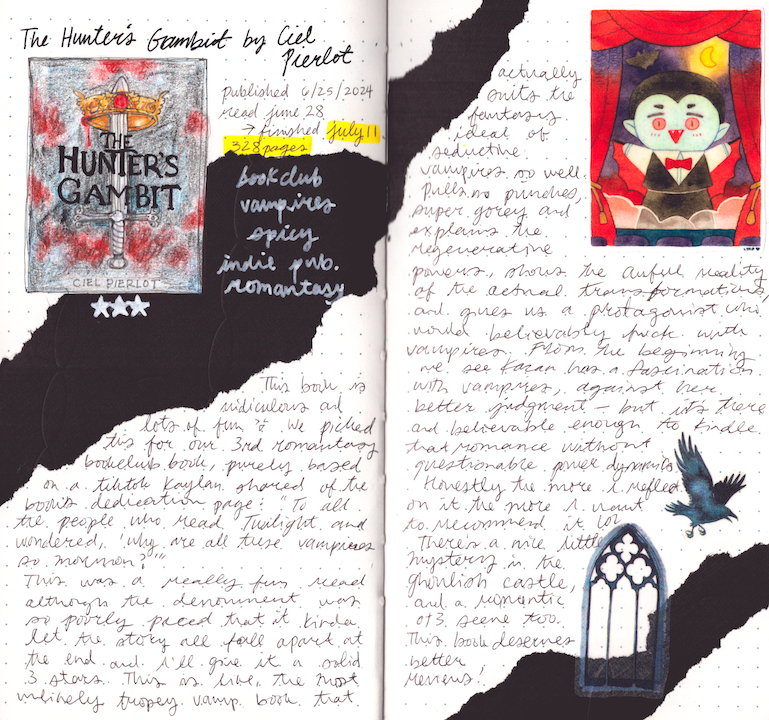 The Hunter's Gambit by Ciel
Pierlot
THE
HUNTER'S
GAMBIT
CIEL PIERLOT
published 6/25/2024
read june 28
→ finished july 11
328 pages
bookclub
vampires
spicy
indie pub.
romantasy
This book is
ridiculous and
lots of fun. We picked
this for our 3rd romantasy
bookclub book, purely based
on a tiktok Kaylan shared of the
book's dedication page: "To all
the people who read Twilight and
wondered, 'why are all these vampires
so mormon?'"
This was a really fun read
although the denoument was
so poorly paced that it kinda
let the story all fall apart at
the end and i'll give it a solid
3 stars. This is like, the most
unlikely tropey vamp book that
actually
suits the
fantasy
ideal of
seductive
vampires so well.
Pulls no punches,
super gorey and
explains the
regenerative
powers, shows the awful reality
of the actual transformations,
and gives us a protagonist who
would believably fuck with
vampires. From the beginning
we see Kazan has a fascination
with vampires, against her
better judgment – but it's there
and believable enough to kindle
that romance without
questionable power dynamics.
Honestly the more i reflect
on it the more i want
to recommend it lol
There's a nice little
mystery in the
ghoulish castle,
and a romantic
ot3 scene too.
This book deserves
better
reviews!